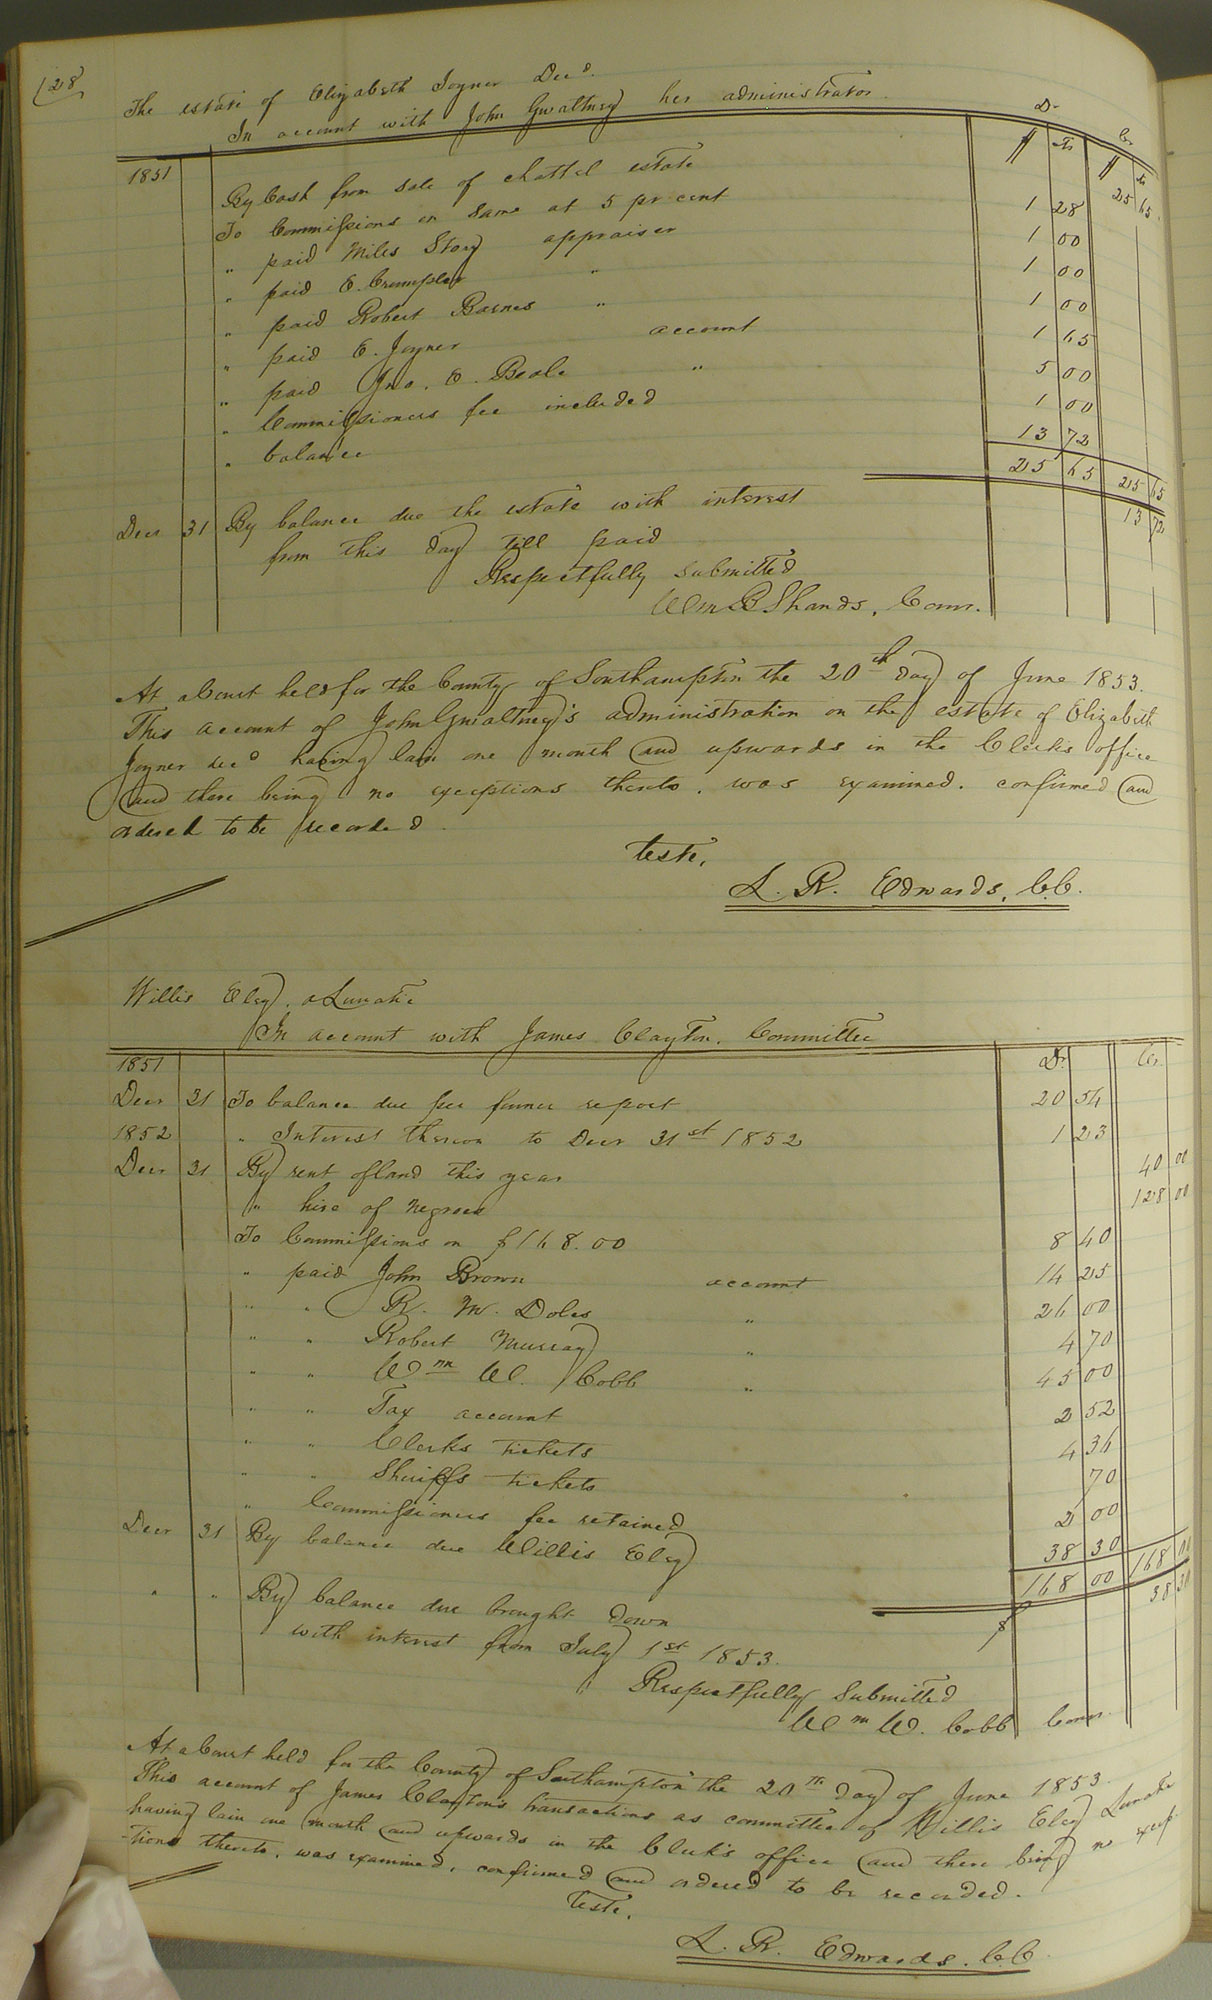 128
The estate of Elizabeth Joyner Decd.
In account with John Gwaltney her administrator
Dr Cr
$ cts $ cts
1851 By Cash from sale of chattel estate 25 65
To Commissions on same at 5 pr cent 1 28
" paid Miles Story appraiser 1 00
" paid E. Crumpler " 1 00
" paid Robert Barnes " 1 00
" paid E. Joyner account 1 65
" paid Jno. E. Beale " 5 00
" Commissioners fee included 1 00
" balance 13 72
25 65 25 65
Decr 31 By balance due the estate with interest 13 72
from this day till paid
Respectfully submitted
Wm B Shands, Comr.
At a Court held for the County of Southampton the 20th day of June 1853.
This account of John Gwaltney's administration on the estate of Elizabeth
Joyner decd having lain one month and upwards in the Clerk's office
and there being no exceptions thereto, was examined, confirmed and
ordered to be recorded.
Teste,
L. R. Edwards, C.C.
Willis Eley, a Lunatic
In account with James Clayton, Committee
1851 Dr. Cr.
Decr 31 To balance due per former report 20 54
1852 " Interest thereon to Decr 31st 1852 1 23
Decr 31 By rent of land this year 40 00
" hire of negroes 128 00
To Commissions on $168.00 8 40
" paid John Brown account 14 25
" " R. M. Doles " 26 00
" " Robert Murray " 4 70
" " Wm W. Cobb " 45 00
" " Tax account 2 52
" " Clerks tickets 4 36
" " Sheriffs tickets 70
" Commissioners fee retained 2 00
Decr 31 By balance due Willis Eley 38 30
168 00 168 00
" " By balance due brought down $ 38 30
with interest from July 1st 1853.
Respectfully submitted
Wm W. Cobb Comr.
At a Court held for the County of Southampton the 20th day of June 1853.
This account of James Clayton's transactions as committee of Willis Eley Lunatic
having lain one month and upwards in the Clerk's office and there being no excep
-tions thereto, was examined, confirmed and ordered to be recorded.
Teste,
L. R. Edwards. C.C.